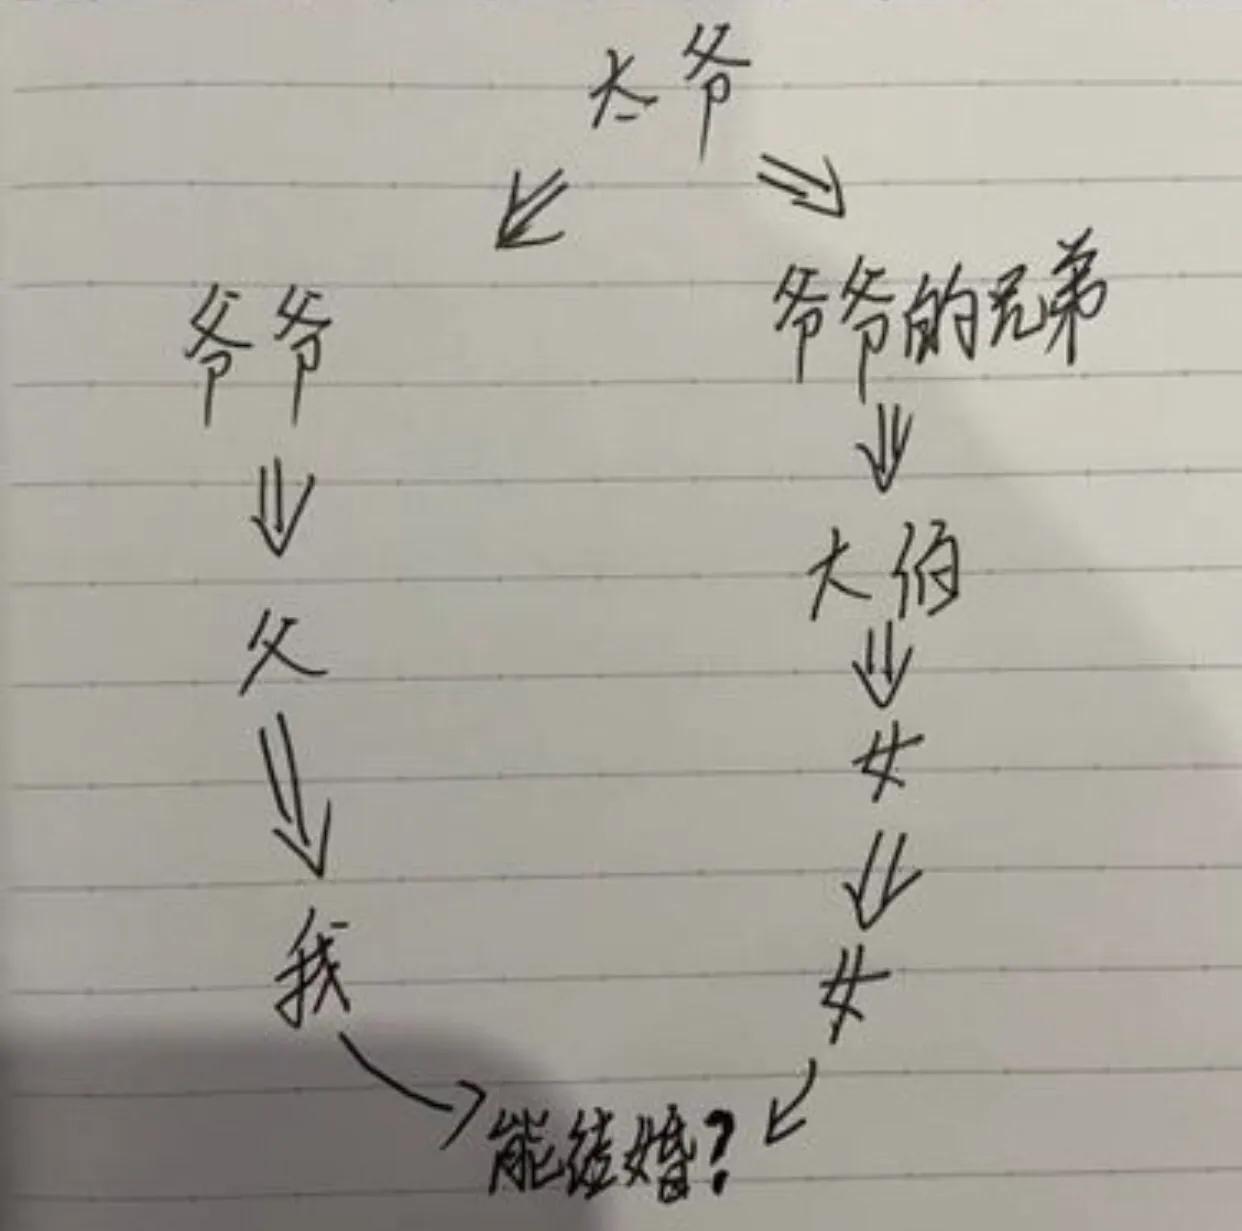 太爷
爷爷的兄弟
爷爷
大伯
父
女
我
女
能结婚?